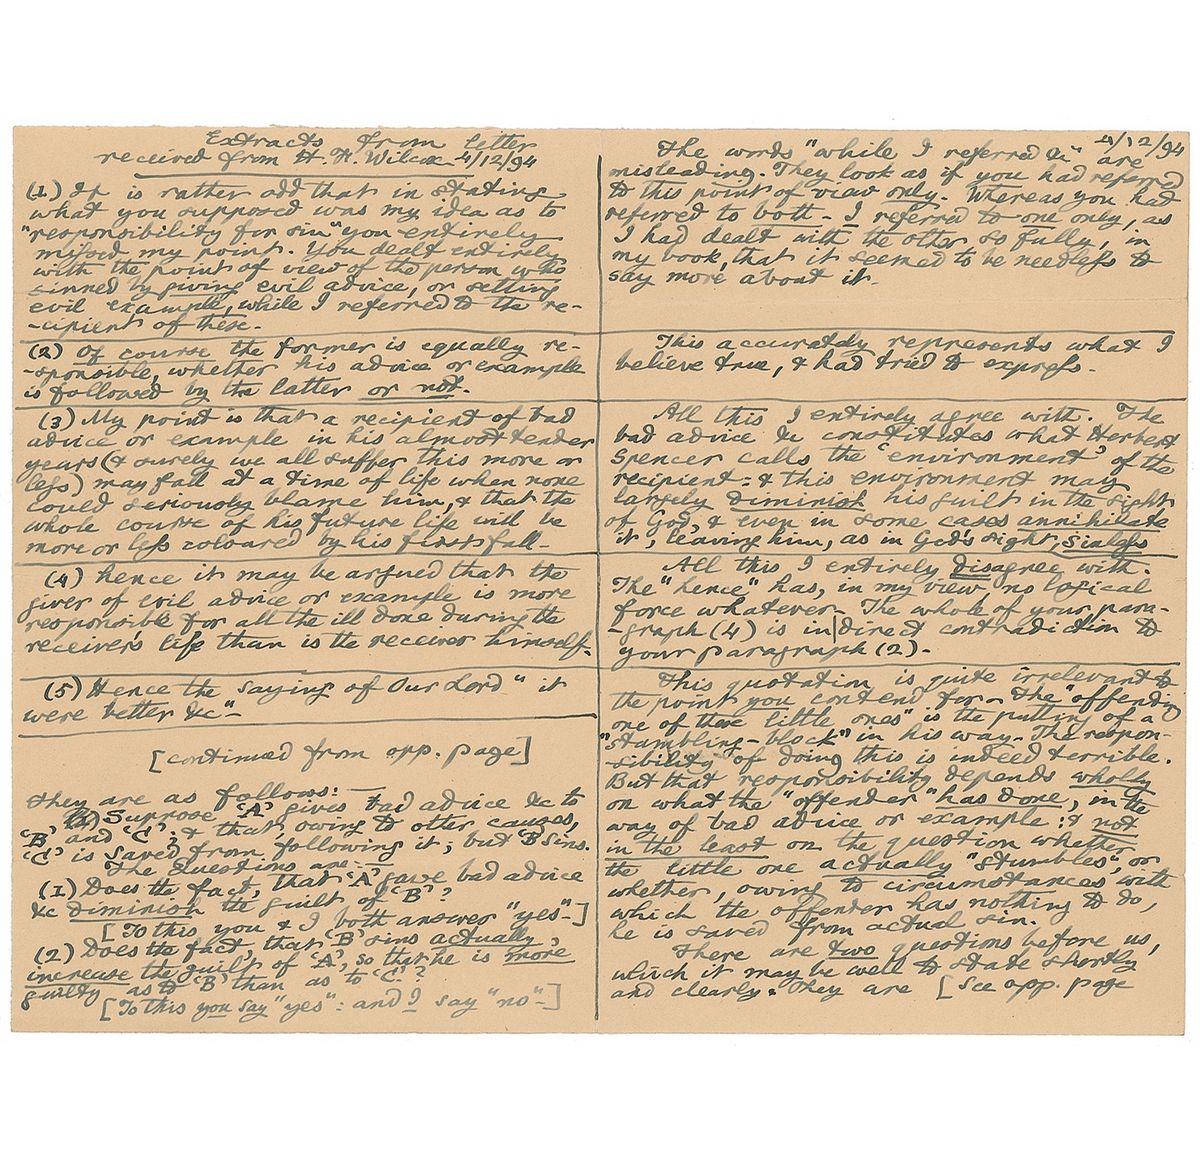 Extracts from letter
received from H. H. Wilcox 4/12/94
(1) It is rather odd that in stating
what you supposed was my idea as to
"responsibility for sin" you entirely
missed my point. You dealt entirely
with the point of view of the person who
sinned by giving evil advice, or setting
evil example, while I referred to the re-
-cipient of these.
(2) Of course the former is equally re-
-sponsible, whether his advice or example
is followed by the latter or not.
(3) My point is that a recipient of bad
advice or example in his almost tender
years (& surely we all suffer this more or
less) may fall at a time of life when none
could seriously blame him, & that the
whole course of his future life will be
more or less coloured by his first fall.
(4) hence it may be argued that the
giver of evil advice or example is more
responsible for all the ill done during the
receiver's life than is the receiver himself.
(5) Hence the saying of Our Lord "it
were better &c"
[continued from opp. page]
They are as follows:—
Suppose 'A' gives bad advice &c to
'B' and 'C'; & that, owing to other causes,
'C' is saved from following it; but 'B' sins.
The questions are:—
(1) Does the fact, that 'A' gave bad advice
&c diminish the guilt of 'B'?
[To this you & I both answer "yes"-]
(2) Does the fact, that 'B' sins actually,
increase the guilt of 'A', so that he is more
guilty as to 'B' than as to 'C'?
[To this you say "yes": and I say "no"-]
4/12/94
The words "while I referred &c" are
misleading. They look as if you had referred
to this point of view only. Whereas you had
referred to both. I referred to one only, as
I had dealt with the other so fully, in
my book, that it seemed to be needless to
say more about it.
This accurately represents what I
believe true, & had tried to express.
All this I entirely agree with. The
bad advice &c constitutes what Herbert
Spencer calls the 'environment' of the
recipient: & this environment may
largely diminish his guilt in the sight
of God, & even in some cases annihilate
it, leaving him, as in God's sight, sinless
All this I entirely disagree with.
The "hence" has, in my view, no logical
force whatever. The whole of your para-
-graph (4) is in direct contradiction to
your paragraph (2).
This quotation is quite irrelevant to
the point you contend for. The "offending
one of these little ones" is the putting of a
"stumbling-block" in his way. The respon-
-sibility of doing this is indeed terrible.
But that responsibility depends wholly
on what the "offender" has done, in the
way of bad advice or example: & not
in the least on the question whether
the little one actually "stumbles", or
whether, owing to circumstances with
which the offender has nothing to do,
he is saved from actual sin.
There are two questions before us,
which it may be well to state shortly
and clearly. They are [see opp. page